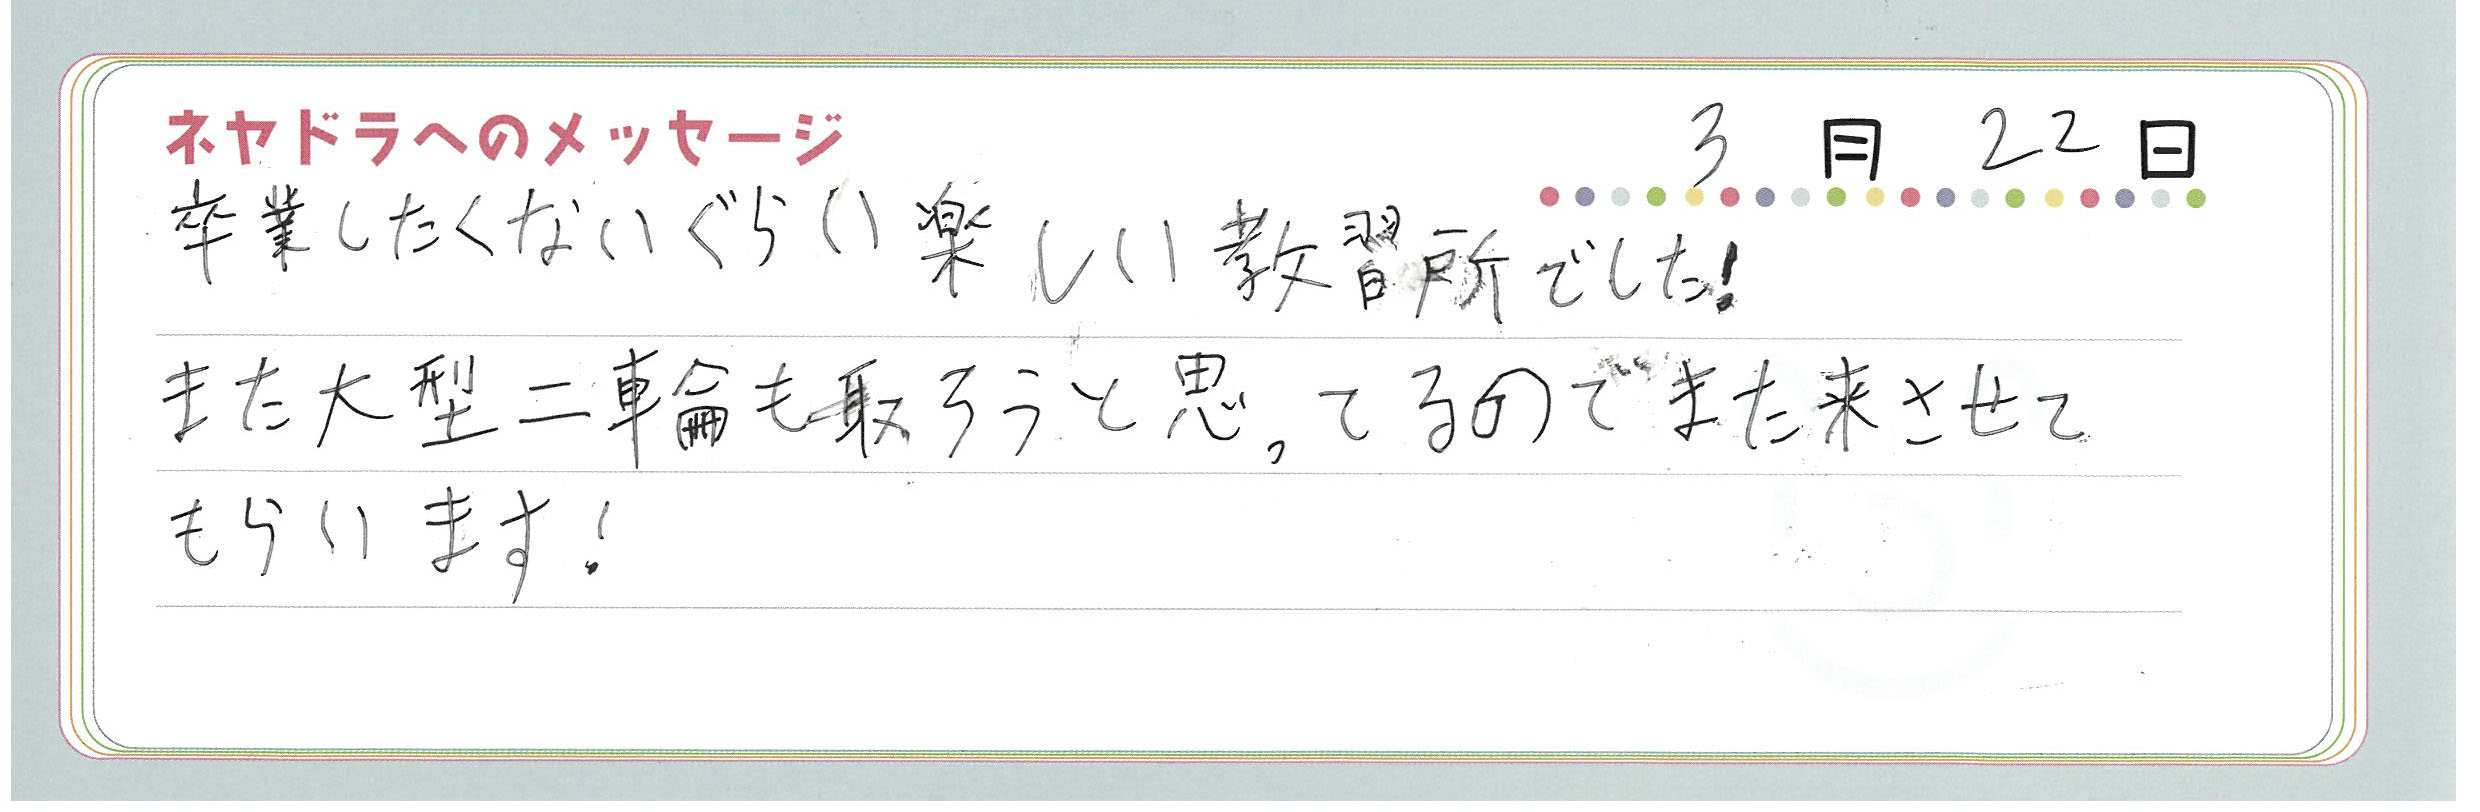 ネヤドラへのメッセージ 3月22日
卒業したくないぐらい楽しい教習所でした!
また大型二車輪も取ろうと思ってるのでまた来させて
もらいます!